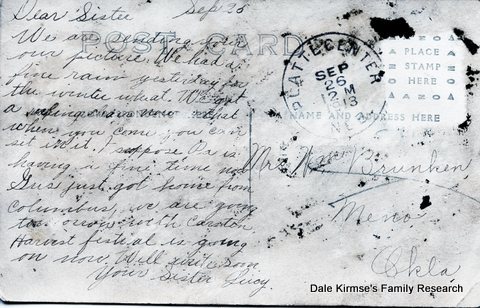 Dear Sister Sep 25
We are sending you
our picture. We had a
fine rain yesterday for
the winter wheat. We got
a now that
when you come you can
sit in it. I suppose Pa is
having a fine time now
Gus just got home from
Columbus, we are going
to town with
Harvest festival is going
on now. Well write soon
Your Sister Lucy.
POST CARD
PLATTE CENTER
SEP
26
12 M
1913
PLACE
STAMP
HERE
AZO
NAME AND ADDRESS HERE
Mrs Wm Brunken
Meno
Okla
Dale Kirmse's Family Research